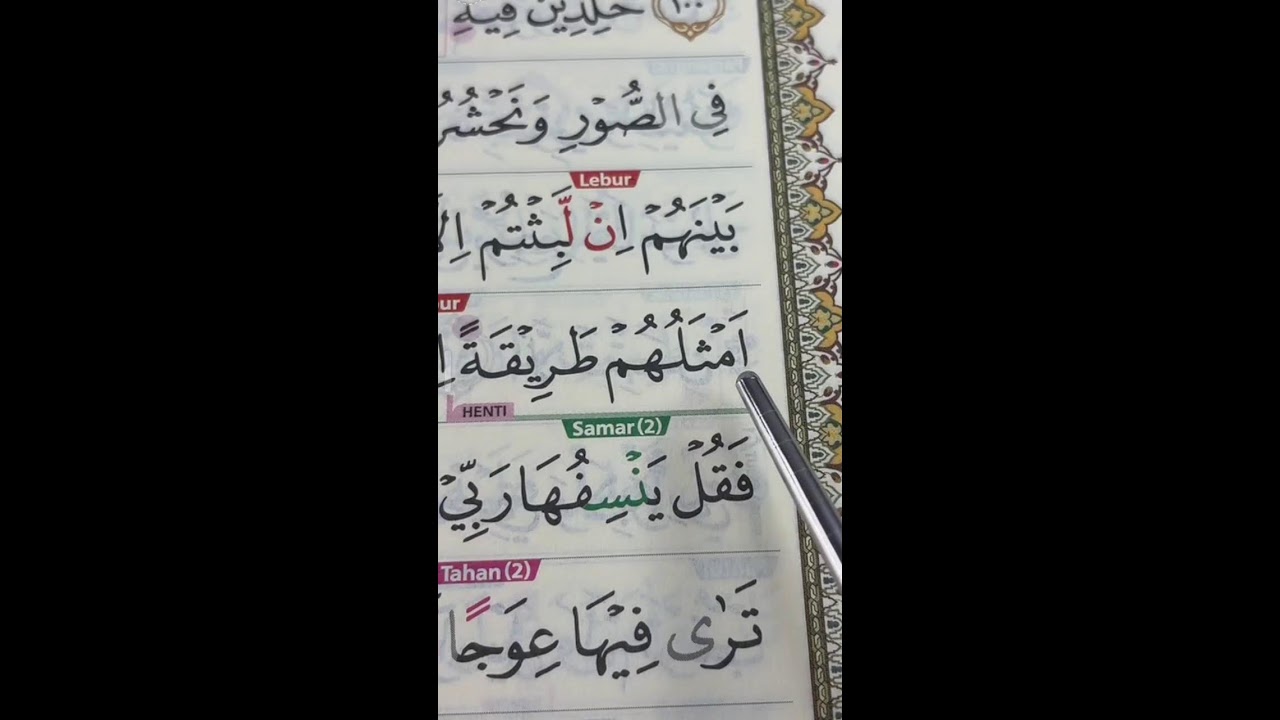 ١٠٠ خٰلِدِيْنَ فِيْهِ
فِى الصُّوْرِ وَنَحْشُرُ
Lebur
بَيْنَهُمْ اِنْ لَّبِثْتُمْ
ur
اَمْثَلُهُمْ طَرِيْقَةً
HENTI
Samar (2)
فَقُلْ يَنْسِفُهَا رَبِّيْ
Tahan (2)
تَرٰى فِيْهَا عِوَجًا